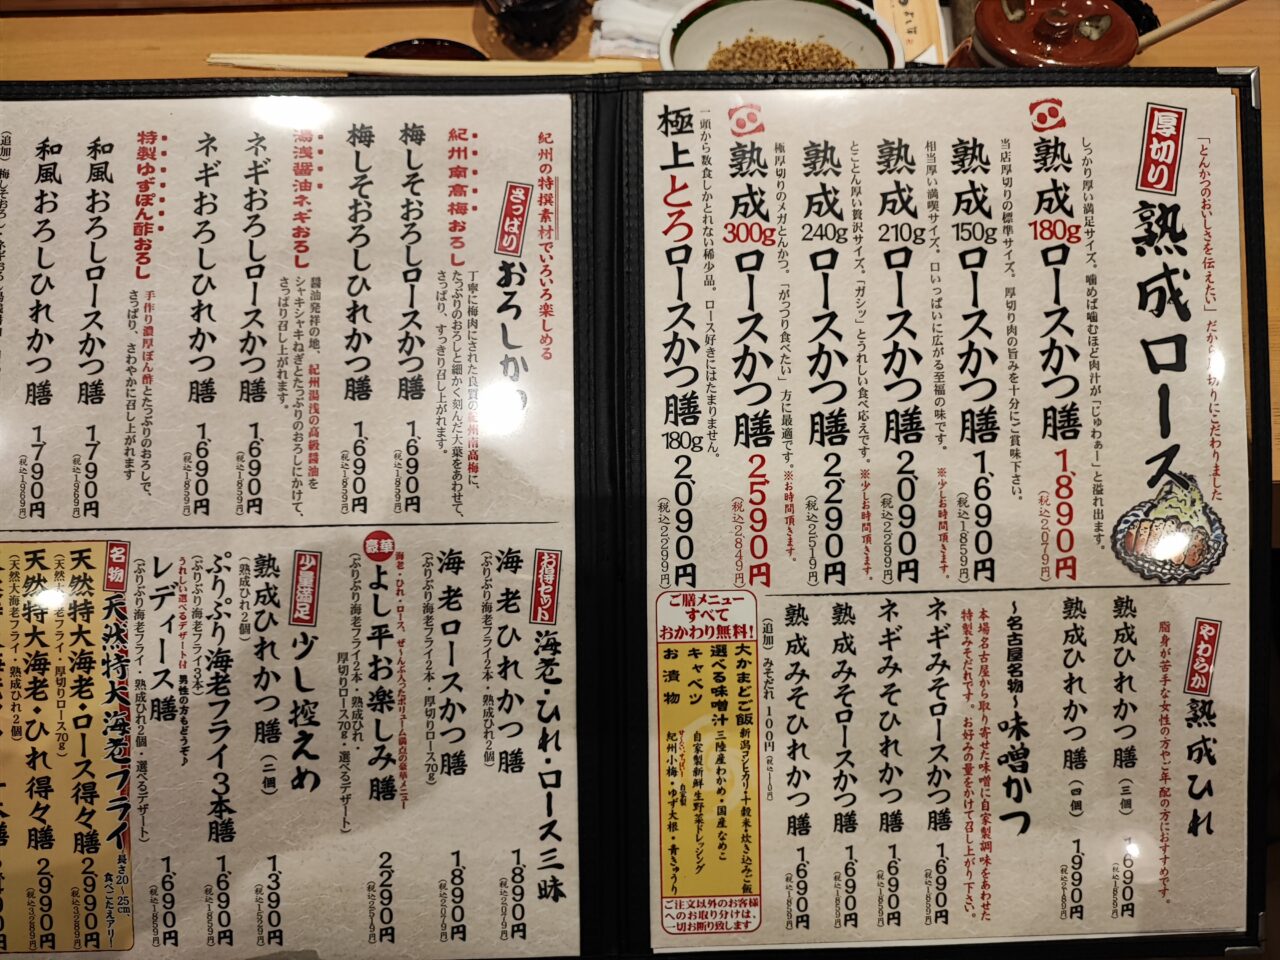 「とんかつのおいしさを伝えたい」だから
切りにこだわりました
厚切り
熟成ロース
しっかり厚い満足サイズ。噛めば噛むほど肉汁が「じゅわぁー」と溢れ出ます。
熟成180gロースかつ膳 1,890円
(税込2,079円)
当店厚切りの標準サイズ。厚切り肉の旨みを十分にご賞味下さい。
熟成150gロースかつ膳 1,690円
(税込1,859円)
相当厚い満喫サイズ。口いっぱいに広がる至福の味です。※少しお時間頂きます。
熟成210gロースかつ膳 2,090円
(税込2,299円)
とことん厚い贅沢サイズ。「ガシッ」とうれしい食べ応えです。※少しお時間頂きます。
熟成240gロースかつ膳 2,290円
(税込2,519円)
極厚切りのメガとんかつ。「がっつり食べたい」方に最適です。※お時間頂きます。
熟成300gロースかつ膳 2,590円
(税込2,849円)
一頭から数食しかとれない稀少品。ロース好きにはたまりません。
極上とろロースかつ膳180g 2,090円
(税込2,299円)
やわらか
熟成ひれ
脂身が苦手な女性の方やご年配の方におすすめです。
熟成ひれかつ膳(三個) 1,690円
(税込1,859円)
熟成ひれかつ膳(四個) 1,990円
(税込2,189円)
〜名古屋名物〜味噌かつ
本場名古屋から取り寄せた味噌に自家製調味をあわせた
特製みそだれです。お好みの量をかけて召し上がり下さい。
ネギみそロースかつ膳 1,690円
(税込1,859円)
ネギみそひれかつ膳 1,690円
(税込1,859円)
熟成みそロースかつ膳 1,690円
(税込1,859円)
熟成みそひれかつ膳 1,690円
(税込1,859円)
(追加)みそだれ 100円(税込110円)
ご膳メニュー
すべて
おかわり無料!
大かまどご飯 新潟コシヒカリ・十穀米・炊き込みご飯
選べる味噌汁 三陸産わかめ・国産なめこ
キャベツ 自家製新鮮生野菜ドレッシング
お漬物 紀州小梅・ゆず大根・青きゅうり
ご注文以外のお客様
へのお取り分けは、
一切お断り致します
紀州の特撰素材でいろいろ楽しめる
さっぱり
おろしかつ
紀州南高梅おろし
丁寧に梅肉にされた良質の紀州南高梅に、
たっぷりのおろしと細かく刻んだ大葉をあわせて、
さっぱり、すっきり召し上がれます。
梅しそおろしロースかつ膳 1,690円
(税込1,859円)
梅しそおろしひれかつ膳 1,690円
(税込1,859円)
湯浅醤油ネギおろし
醤油発祥の地、紀州湯浅の高級醤油を
シャキシャキねぎとたっぷりのおろしにかけて、
さっぱり召し上がれます。
ネギおろしロースかつ膳 1,690円
(税込1,859円)
ネギおろしひれかつ膳 1,690円
(税込1,859円)
特製ゆずぽん酢おろし
手作り濃厚ぽん酢とたっぷりのおろしで、
さっぱり、さわやかに召し上がれます
和風おろしロースかつ膳 1,790円
(税込1,969円)
和風おろしひれかつ膳 1,790円
(税込1,969円)
(追加)梅しそおろし・ネギおろし
お得セット
海老・ひれ・ロース三昧
海老ひれかつ膳 1,890円
(ぷりぷり海老フライ2本・熟成ひれ2個)
(税込2,079円)
海老ロースかつ膳 1,890円
(ぷりぷり海老フライ2本・厚切りロース70g)
(税込2,079円)
海老・ひれ・ロース、ぜ〜んぶ入ったボリューム満点の豪華メニュー
豪華
よし平お楽しみ膳 2,290円
(ぷりぷり海老フライ2本・熟成ひれ・
厚切りロース70g・選べるデザート)
(税込2,519円)
少量満足
少し控えめ
熟成ひれかつ膳(二個) 1,390円
(熟成ひれ2個)
(税込1,529円)
ぷりぷり海老フライ3本膳 1,690円
(ぷりぷり海老フライ3本)
(税込1,859円)
うれしい選べるデザート付 男性の方もどうぞ♪
レディース膳 1,690円
(ぷりぷり海老フライ・熟成ひれ2個・選べるデザート)
(税込1,859円)
名物
天然特大海老フライ
長さ20〜25cm、
食べごたえアリー
天然特大海老・ロース得々膳 2,990円
(天然特大海老フライ・厚切りロース70g)
(税込3,289円)
天然特大海老・ひれ得々膳 2,990円
(天然大海老フライ・熟成ひれ2個)
(税込3,289円)